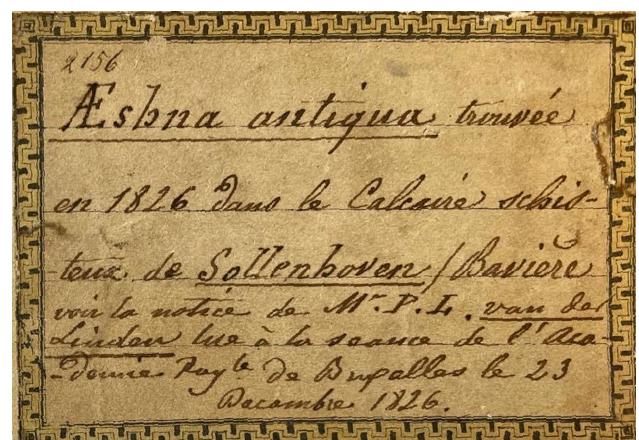 2156
Æshna antiqua trouvée
en 1826 dans le Calcaire schis-
teux de Sollenhoven / Bavière
voir la notice de Mr. P. L. van der
Linden lue à la seance de l'Aca-
-demie Royle de Bruxelles le 23
Decembre 1826.